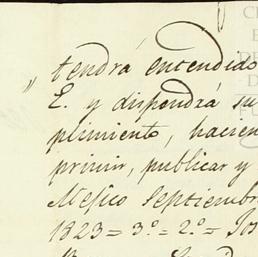 " tendrá entendido
E. y dispondrá su
plimiento, hacien
primir, publicar y
Mejico Septiembr
1823 = 3.º = 2.º =